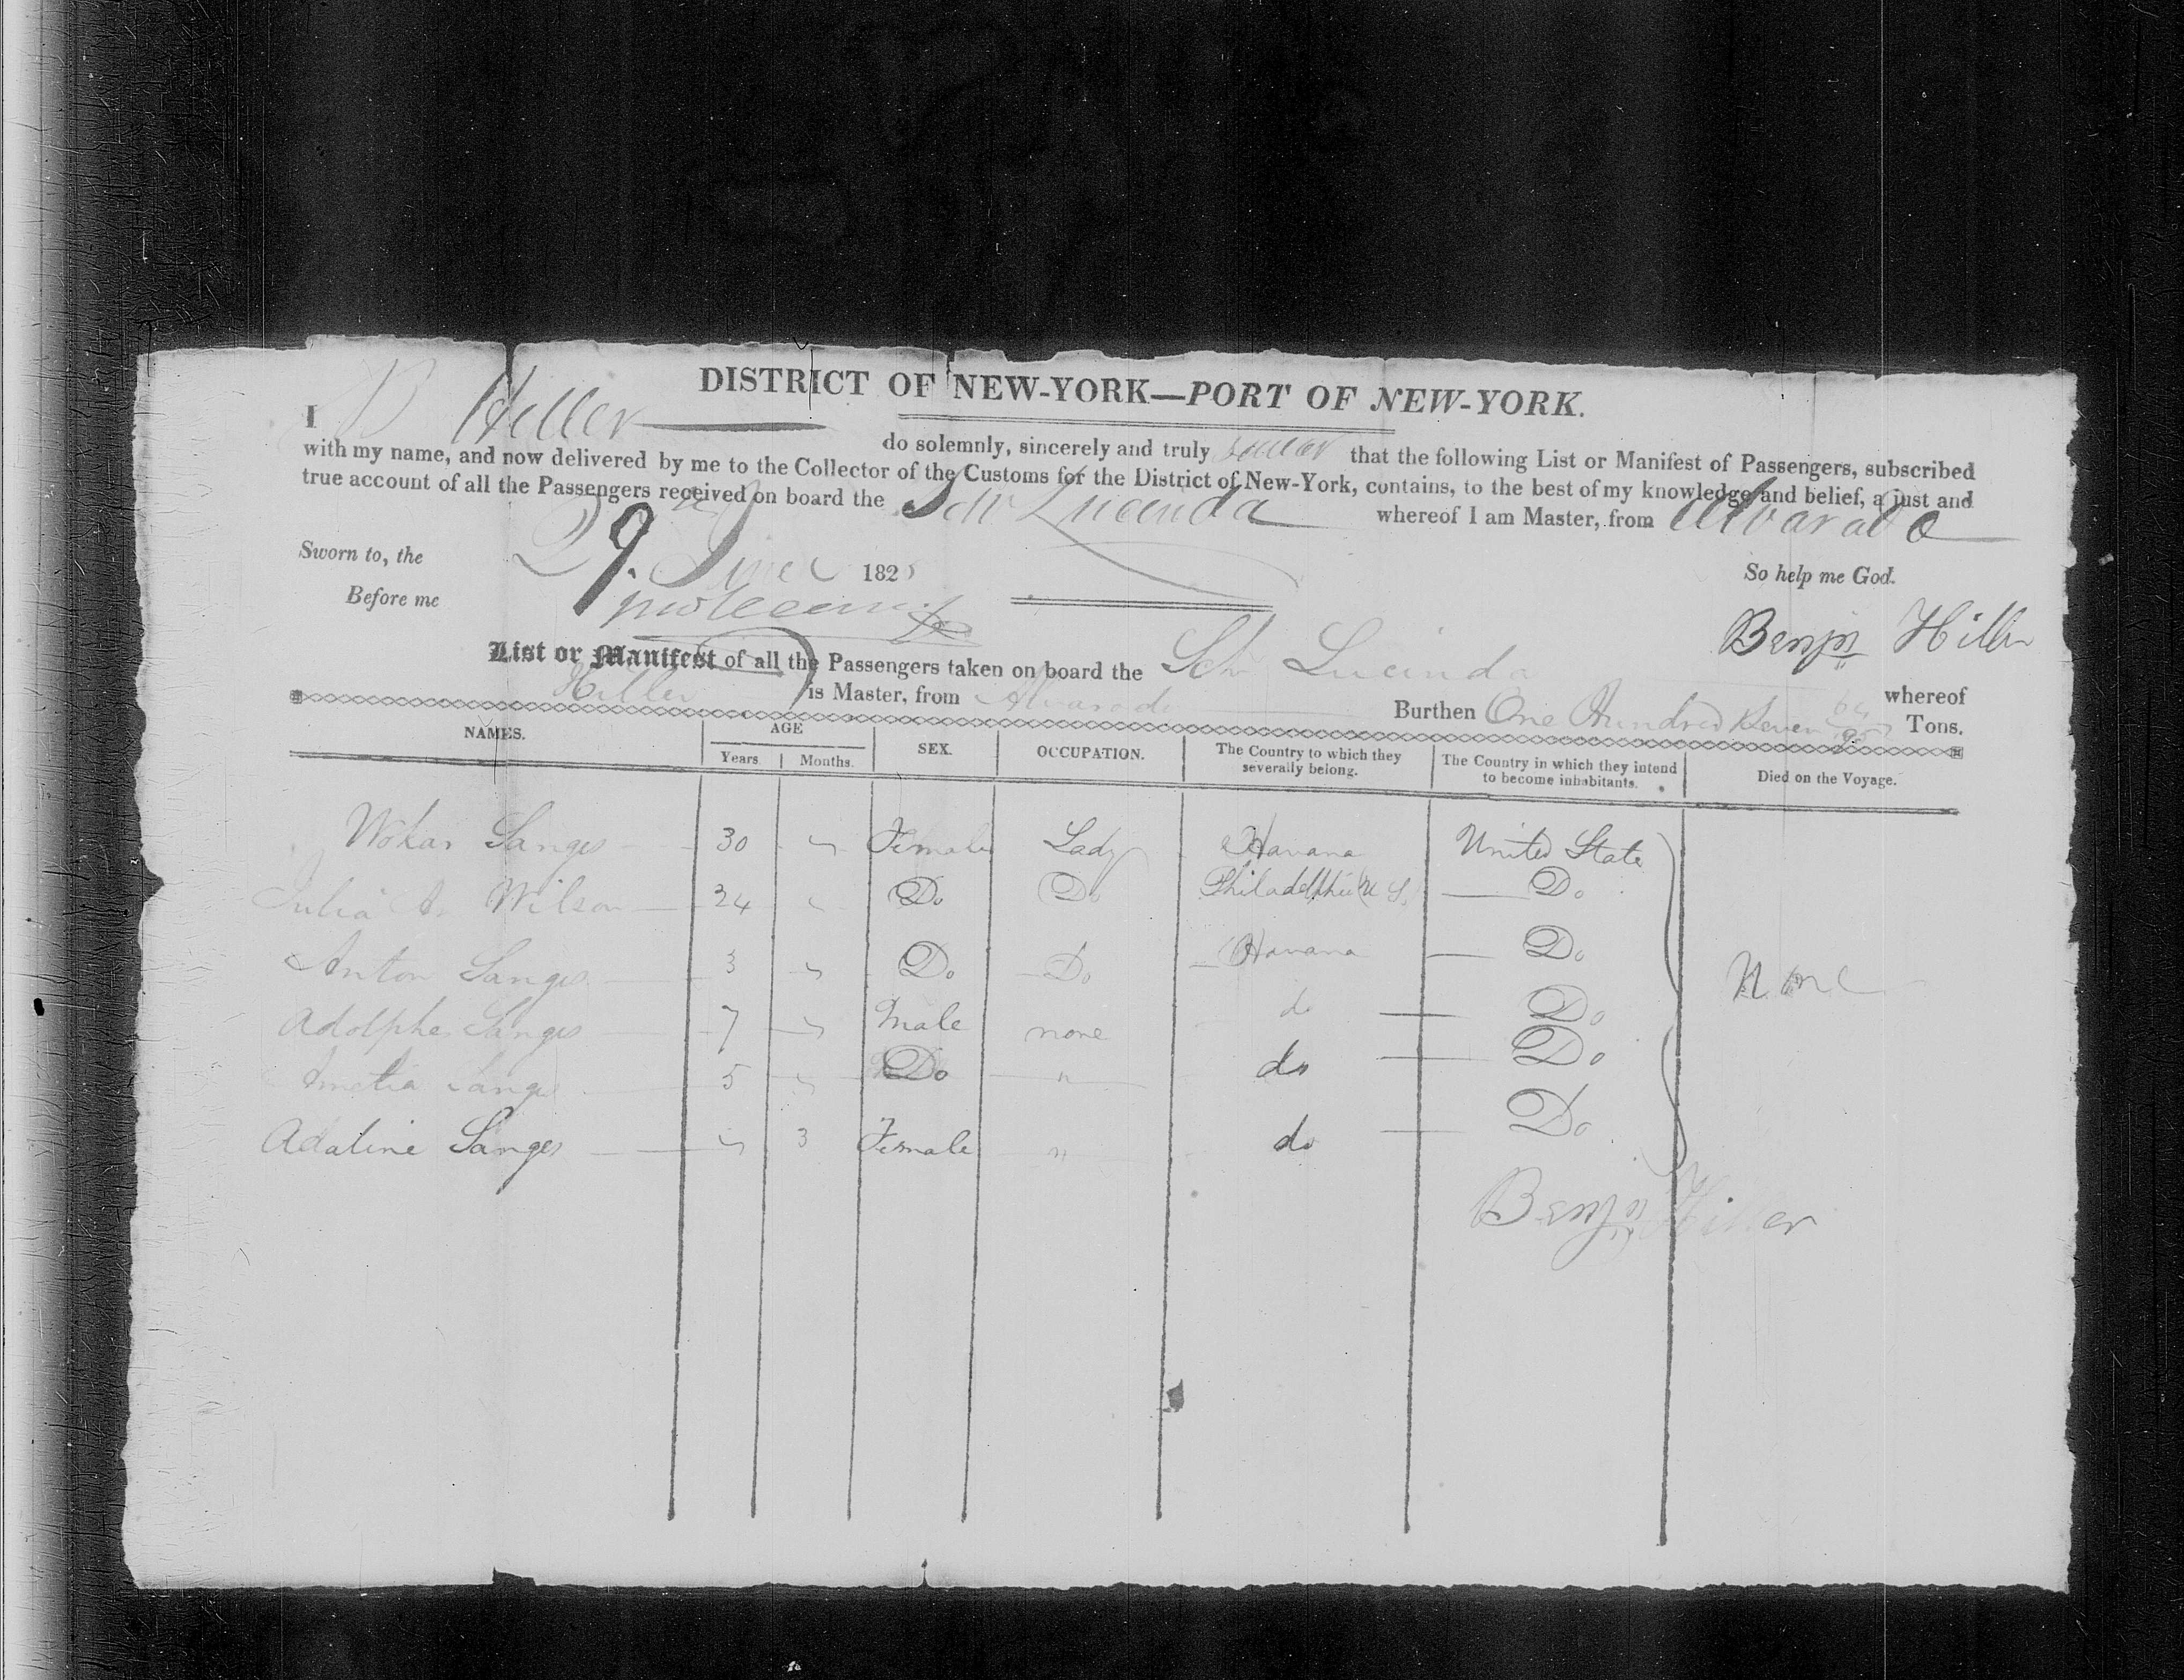 DISTRICT OF NEW-YORK—PORT OF NEW-YORK.
I B Hiller do solemnly, sincerely and truly swear that the following List or Manifest of Passengers, subscribed
with my name, and now delivered by me to the Collector of the Customs for the District of New-York, contains, to the best of my knowledge and belief, a just and
true account of all the Passengers received on board the Schr Lucinda whereof I am Master, from Alvarado
Sworn to, the 29 June 1825 So help me God.
Before me Benjn Hiller
List or Manifest of all the Passengers taken on board the Schr Lucinda whereof
Hiller is Master, from Alvarado Burthen One Hundred Seven 64/95 Tons.
NAMES. AGE SEX. OCCUPATION. The Country to which they severally belong. The Country in which they intend to become inhabitants. Died on the Voyage.
Years Months.
Sanges 30 " Female Lady Havana United State
Julia A. Wilson 24 " Do Do Philadelphia U S. Do
Anton Sanges 3 " Do Do Havana Do None
Adolphe Sanges 7 " Male none do Do
Sanges 5 " Do " do Do
Adaline Sanges " 3 Female " do Do
Benjn Hiller